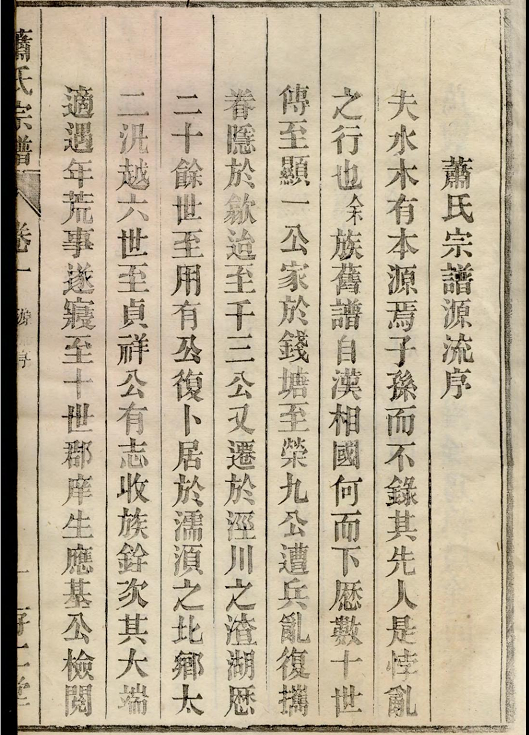 蕭氏宗譜源流序
夫水木有本源焉子孫而不錄其先人是悖亂
之行也余族舊譜自漢相國何而下厯數十世
傳至顯一公家於錢塘至榮九公遭兵亂復攜
眷隱於歙迨至千三公又遷於涇川之渣湖厯
二十餘世至用有公復卜居於濡湏之北鄉太
二況越六世至貞祥公有志收族銓次其大端
適遇年荒事遂寢至十世郡庠生應基公檢閱
蕭氏宗譜 卷一